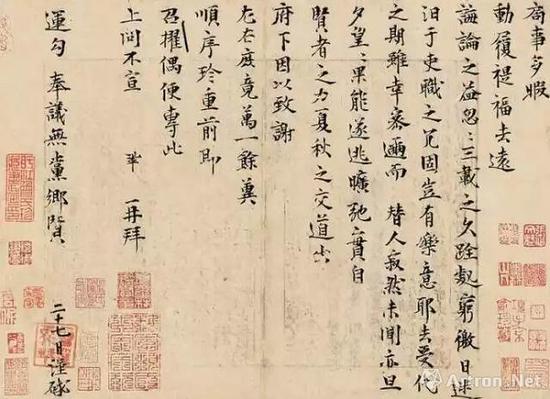 局事多暇
動履禔福去遠
誨論之益忽〻三載之久跧處窮徼日迷
汩于吏職之冗固豈有樂意耶去受代
之期雖幸密邇而 替人寂然未聞亦旦
夕望〻果能遂逃曠弛實自
賢者之力夏秋之交道出
府下因以致謝
左右庶竟萬一餘冀
順序珍重前即
召擢偶便專此
上問不宣 鞏再拜
運勾 奉議無黨鄉賢
二十七日謹啓
Artron.Net